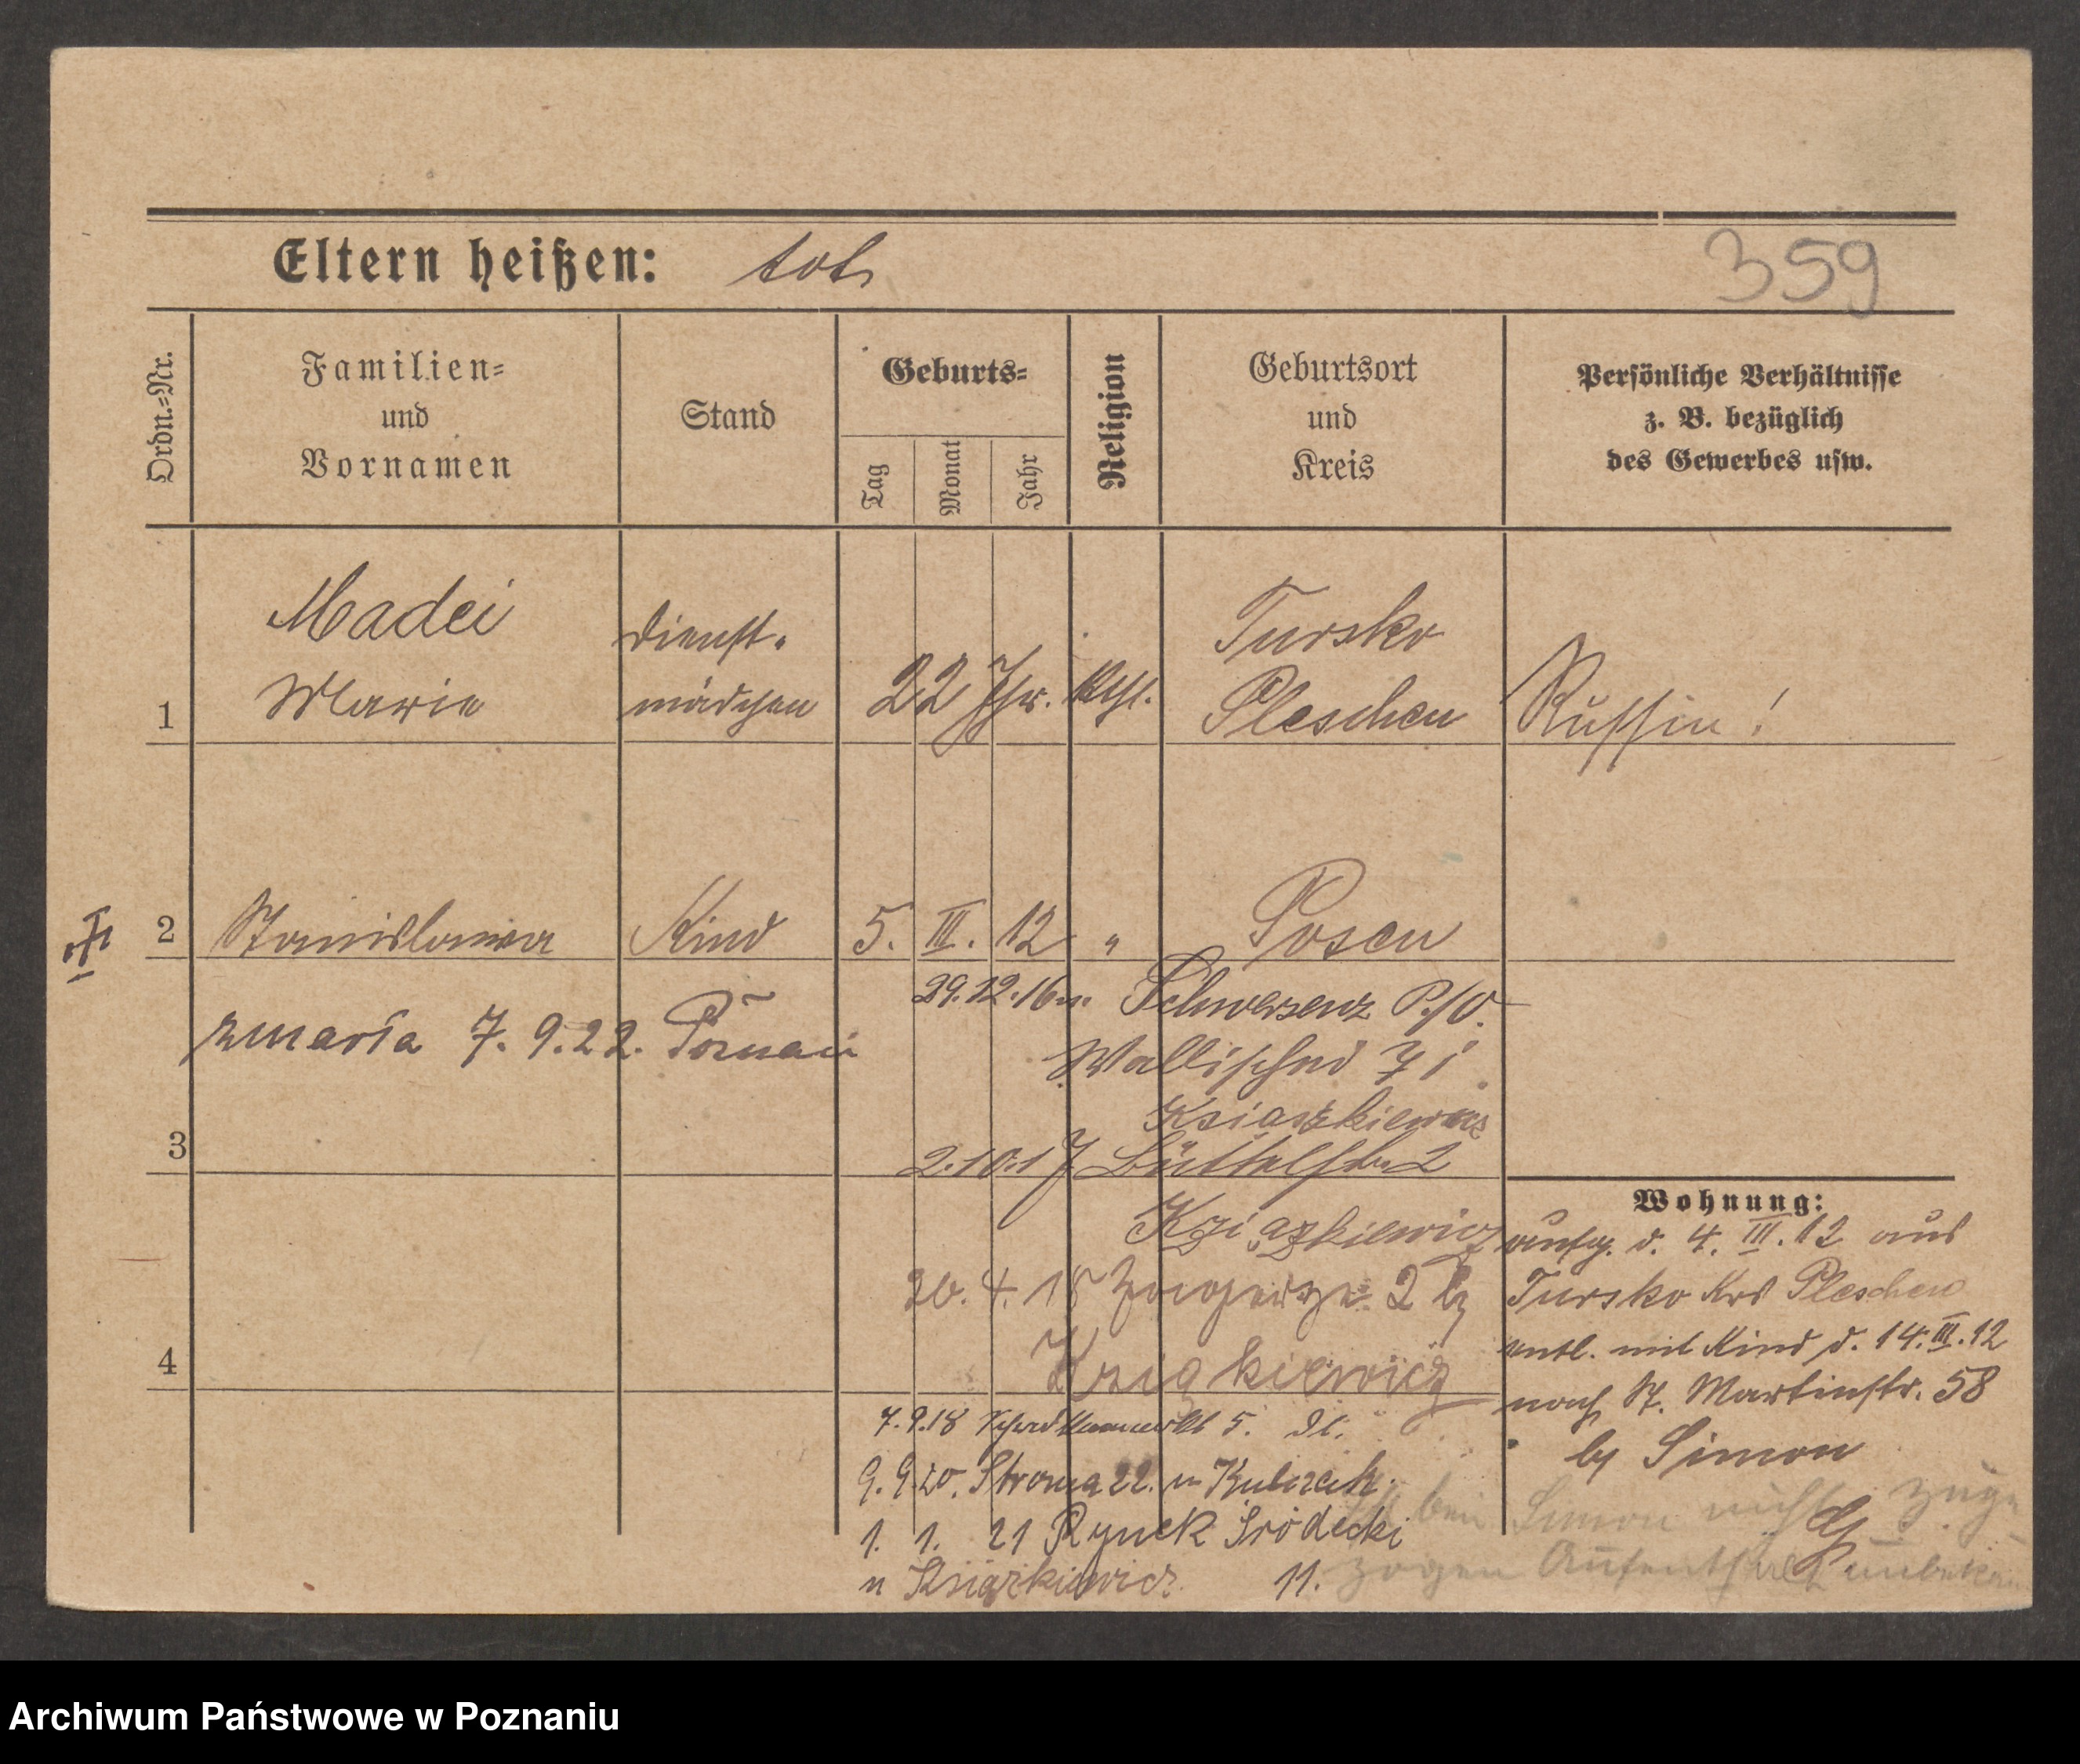 Eltern heißen: tot
359
Ordn.-Nr.
Familien-
und
Vornamen
Stand
Geburts-
Tag
Monat
Jahr
Religion
Geburtsort
und
Kreis
Persönliche Verhältnisse
z. B. bezüglich
des Gewerbes usw.
1
Madei
Marie
Dienst-
mädchen
22 Jhr.
kth.
Tursko
Pleschen
Russin!
2 Stanislawa Kind 5. III. 12 " Posen
29.12.16 Schwersenz P./O.
zmarła 7. 9. 22. Poznań
Wallischei 71
Ksiaszkiewicz
3
2.10.17 Büttelstr. 2
Wohnung:
zugez. v. 4. III. 12 aus
Tursko Krs Pleschen
entl. mit Kind d. 14. III. 12
nach St. Martinstr. 58
by Simon
26. 4. 18 2 by
4
7. 9. 18 5.
9. 9. 20. Stroma 22. u
1. 1. 21 Rynek Śródecki
u Książkiewicz 11.
bei Simon nicht zuge
zogen Aufenthalt unbekan
Archiwum Państwowe w Poznaniu